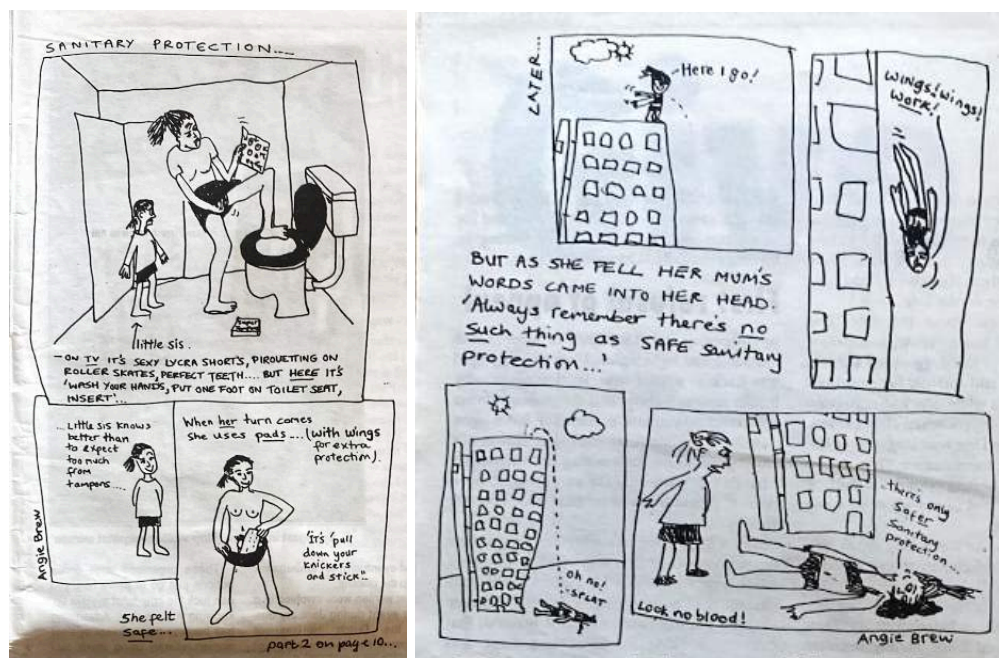 SANITARY PROTECTION.....
little sis.
- ON TV IT'S SEXY LYCRA SHORTS, PIROUETTING ON
ROLLER SKATES, PERFECT TEETH.... BUT HERE IT'S
'WASH YOUR HANDS, PUT ONE FOOT ON TOILET SEAT,
INSERT'...
... Little sis knows
better than
to expect
too much
from
tampons....
Angie Brew
When her turn comes
she uses pads....(with wings
for extra
protection).
"It's 'pull
down your
knickers
and stick'".
She felt
safe...
part 2 on page 10...
LATER...
Here I go!
Wings! Wings!
Work!
BUT AS SHE FELL HER MUM'S
WORDS CAME INTO HER HEAD.
'Always remember there's no
such thing as SAFE sanitary
protection...'
oh no!
SPLAT
there's only
safer
sanitary
protection...
Look no blood!
Angie Brew